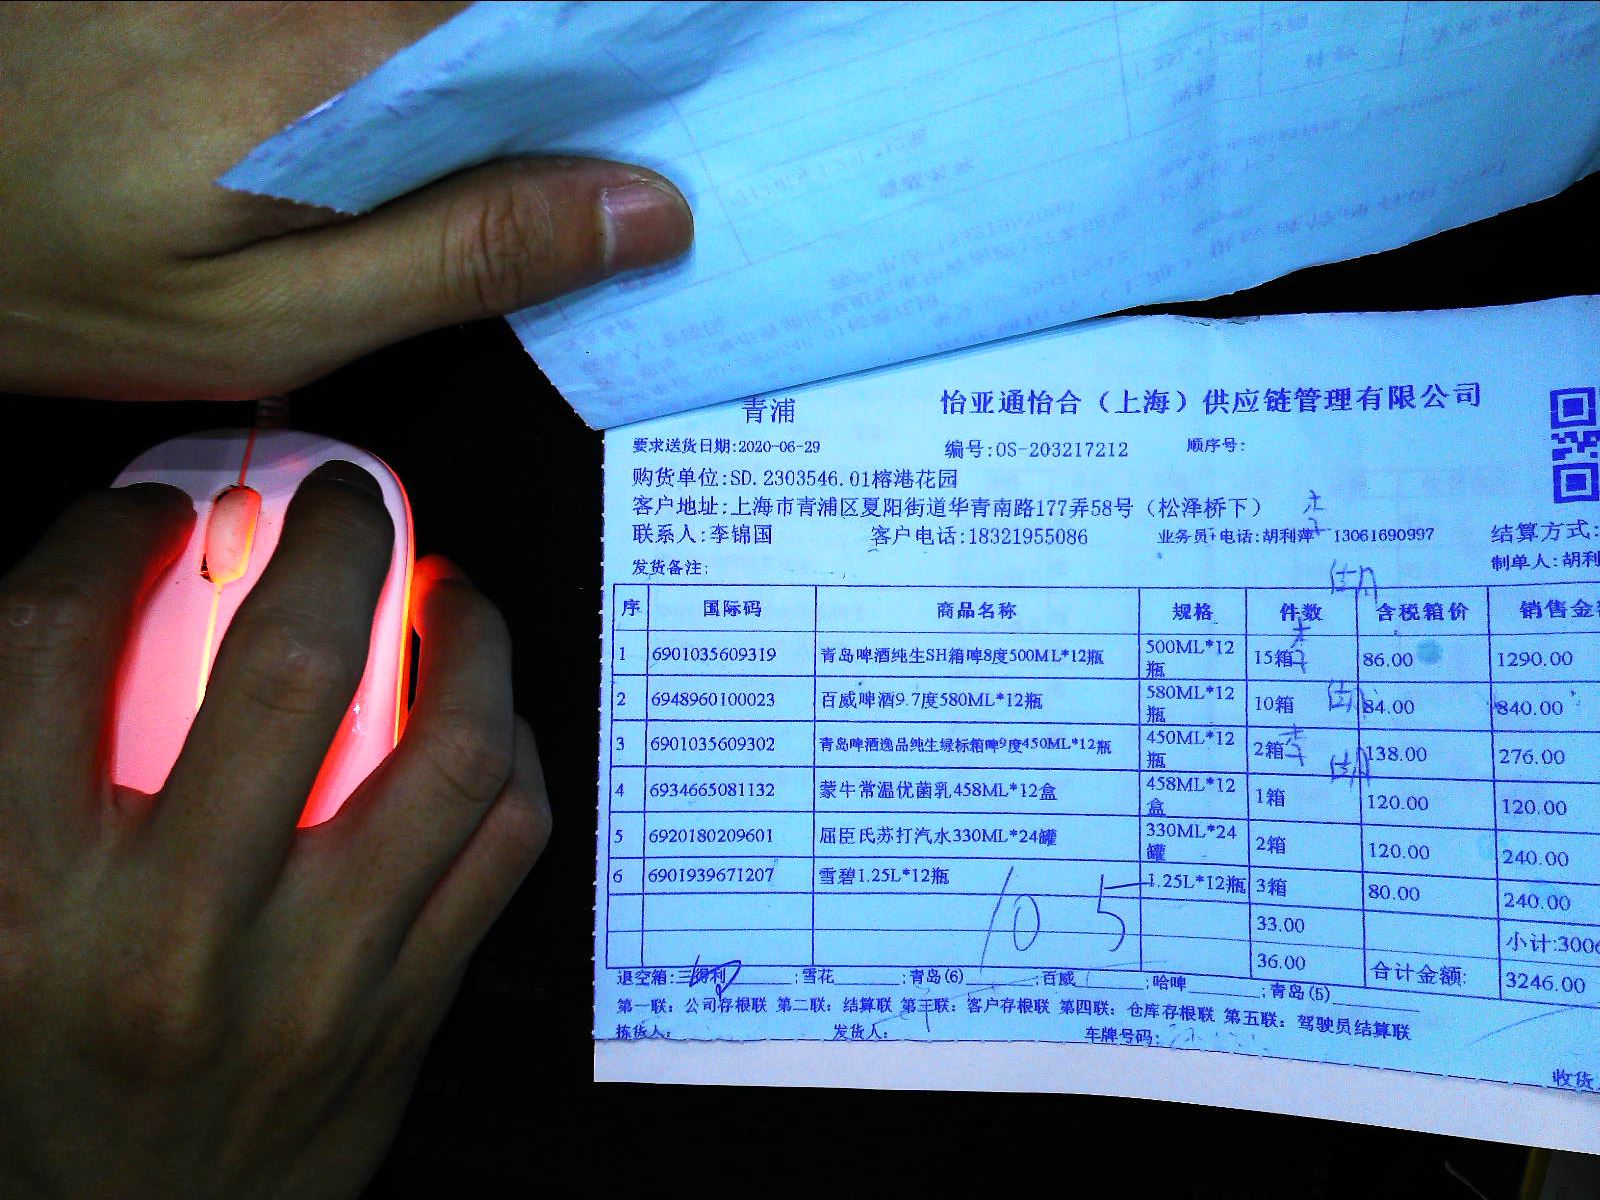 青浦 怡亚通怡合（上海）供应链管理有限公司
要求送货日期:2020-06-29 编号:OS-203217212 顺序号:
购货单位:SD.2303546.01榕港花园
客户地址:上海市青浦区夏阳街道华青南路177弄58号（松泽桥下）
联系人:李锦国 客户电话:18321955086 业务员+电话:胡利萍 13061690997 结算方式:
发货备注: 制单人:胡利
序 国际码 商品名称 规格 件数 含税箱价 销售金
1 6901035609319 青岛啤酒纯生SH箱啤8度500ML*12瓶 500ML*12瓶 15箱 86.00 1290.00
2 6948960100023 百威啤酒9.7度580ML*12瓶 580ML*12瓶 10箱 84.00 840.00
3 6901035609302 青岛啤酒逸品纯生绿标箱啤9度450ML*12瓶 450ML*12瓶 2箱 138.00 276.00
4 6934665081132 蒙牛常温优菌乳458ML*12盒 458ML*12盒 1箱 120.00 120.00
5 6920180209601 屈臣氏苏打汽水330ML*24罐 330ML*24罐 2箱 120.00 240.00
6 6901939671207 雪碧1.25L*12瓶 1.25L*12瓶 3箱 80.00 240.00
33.00 小计:3006
36.00 合计金额: 3246.00
10 5
退空箱:三得利______;雪花______;青岛(6)______;百威______;哈啤______;青岛(5)______
第一联：公司存根联 第二联：结算联 第三联：客户存根联 第四联：仓库存根联 第五联：驾驶员结算联
拣货人: 发货人: 车牌号码:
收货